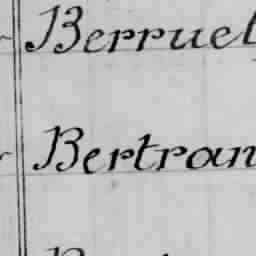 Berruel
Bertran